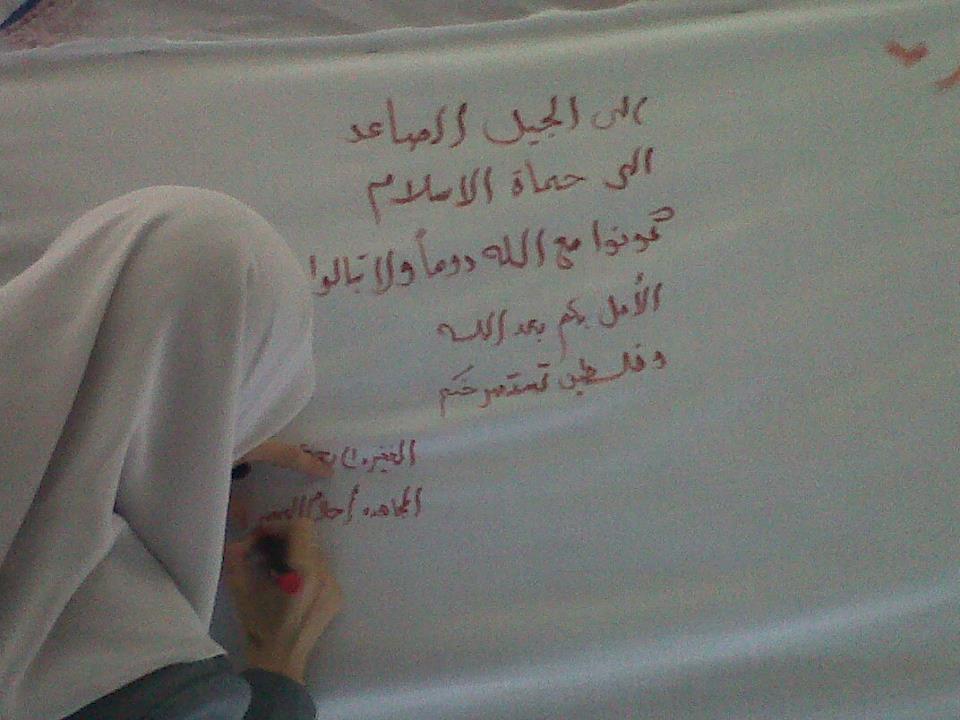 الى الجيل الصاعد
الى حماة الاسلام
كونوا مع الله دوماً ولا تبالوا
الأمل بكم بعد الله
وفلسطين تستصرخكم
المجاهدة أحلام